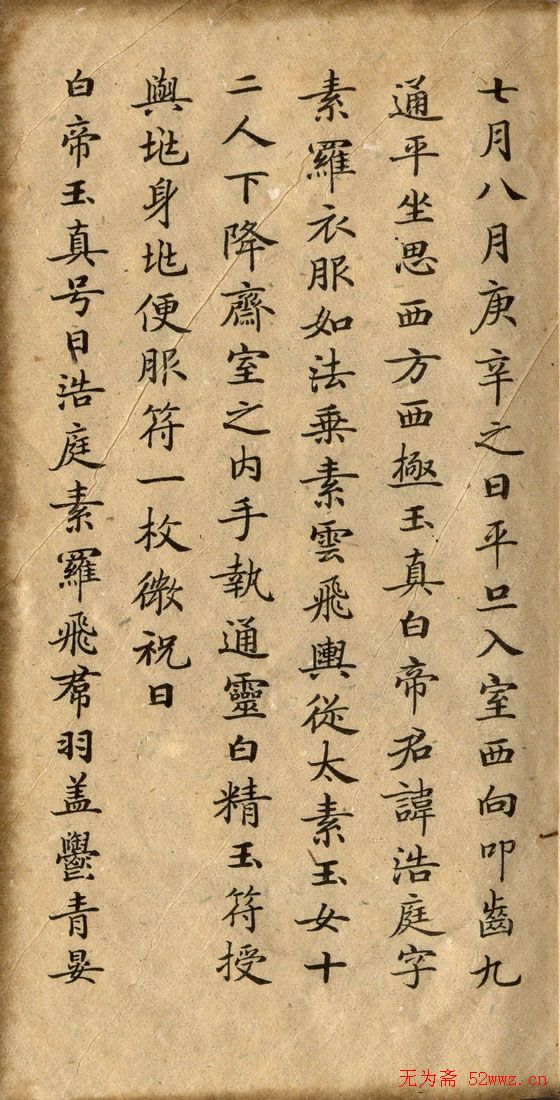 七月八月庚辛之日平旦入室西向叩齒九
通平坐思西方西極玉真白帝君諱浩庭字
素羅衣服如法乗素雲飛輿從太素玉女十
二人下降齋室之内手執通靈白精玉符授
與地身地便服符一枚微祝曰
白帝玉真号曰浩庭素羅飛帬羽盖鬱青晏
无为斋 52wwz.cn